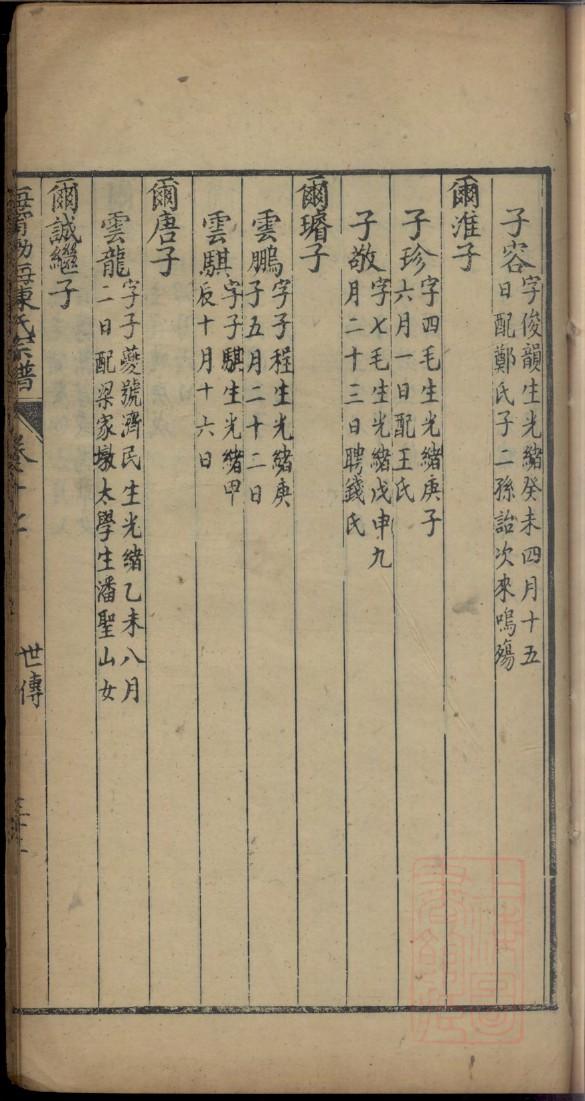 子容字俊韻生光緒癸未四月十五
日配鄭氏子二孫詒次來鳴殤
爾淮子
子珍字四毛生光緒庚子
六月一日配王氏
子敬字七毛生光緒戊申九
月二十三日聘錢氏
爾璿子
雲鵬字子程生光緒庚
子五月二十二日
雲騏字子騏生光緒甲
辰十月十六日
爾唐子
雲龍字子夔號濟民生光緒乙未八月
二日配梁家墩太學生潘聖山女
爾誠繼子
海甯渤海陳氏宗譜
世傳